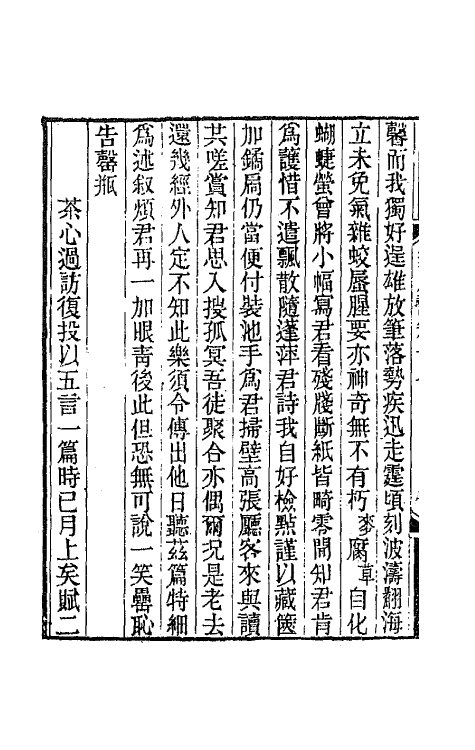 馨而我獨好逞雄放筆落勢疾迅走霆頃刻波濤翻海
立未免氣雜蛟蜃腥要亦神奇無不有朽麥腐草自化
蝴蜨螢曾將小幅寫君看殘牋斷紙皆畸零聞知君肯
爲護惜不遣飄散隨蓬萍君詩我自好檢點謹以藏篋
加鐍扃仍當便付裝池手爲君掃壁高張廳客來與讀
共嗟賞知君思入搜孤冥吾徒聚合亦偶爾況是老去
還幾經外人定不知此樂須令傳出他日聽茲篇特細
爲述叙煩君再一加眼靑後此但恐無可說一笑罍恥
告罄瓶
茶心過訪復投以五言一篇時已月上矣賦二